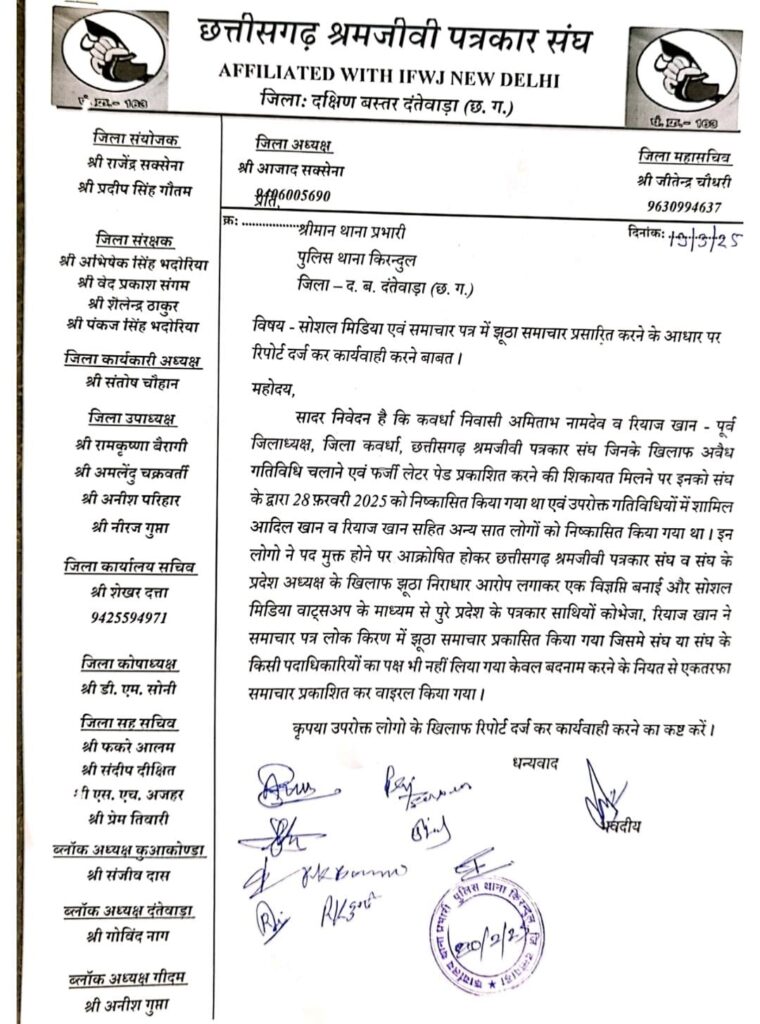 छत्तीसगढ़ श्रमजीवी पत्रकार संघ
AFFILIATED WITH IFWJ NEW DELHI
जिला: दक्षिण बस्तर दंतेवाड़ा (छ. ग.)
पं. क्र.- 163
पं. क्र.- 163
जिला संयोजक
श्री राजेंद्र सक्सेना
श्री प्रदीप सिंह गौतम
जिला संरक्षक
श्री अभिषेक सिंह भदोरिया
श्री वेद प्रकाश संगम
श्री शैलेन्द्र ठाकुर
श्री पंकज सिंह भदोरिया
जिला कार्यकारी अध्यक्ष
श्री संतोष चौहान
जिला उपाध्यक्ष
श्री रामकृष्णा बैरागी
श्री अमलेंदु चक्रवर्ती
श्री अनीश परिहार
श्री नीरज गुप्ता
जिला कार्यालय सचिव
श्री शेखर दत्ता
9425594971
जिला कोषाध्यक्ष
श्री डी. एम. सोनी
जिला सह सचिव
श्री फकरे आलम
श्री संदीप दीक्षित
श्री एस. एच. अजहर
श्री प्रेम तिवारी
ब्लॉक अध्यक्ष कुआकोण्डा
श्री संजीव दास
ब्लॉक अध्यक्ष दंतेवाड़ा
श्री गोविंद नाग
ब्लॉक अध्यक्ष गीदम
श्री अनीश गुप्ता
जिला अध्यक्ष
श्री आजाद सक्सेना
प्रति,
जिला महासचिव
श्री जीतेन्द्र चौधरी
9630994637
क्र: ..................
दिनांक: 19/3/25
श्रीमान थाना प्रभारी
पुलिस थाना किरन्दुल
जिला – द. ब. दंतेवाड़ा (छ. ग.)
विषय - सोशल मिडिया एवं समाचार पत्र में झूठा समाचार प्रसारित करने के आधार पर
रिपोर्ट दर्ज कर कार्यवाही करने बाबत ।
महोदय,
सादर निवेदन है कि कवर्धा निवासी अमिताभ नामदेव व रियाज खान - पूर्व
जिलाध्यक्ष, जिला कवर्धा, छत्तीसगढ़ श्रमजीवी पत्रकार संघ जिनके खिलाफ अवैध
गतिविधि चलाने एवं फर्जी लेटर पेड प्रकाशित करने की शिकायत मिलने पर इनको संघ
के द्वारा 28 फ़रवरी 2025 को निष्कासित किया गया था एवं उपरोक्त गतिविधियों में शामिल
आदिल खान व रियाज खान सहित अन्य सात लोगों को निष्कासित किया गया था । इन
लोगो ने पद मुक्त होने पर आक्रोषित होकर छत्तीसगढ़ श्रमजीवी पत्रकार संघ व संघ के
प्रदेश अध्यक्ष के खिलाफ झूठा निराधार आरोप लगाकर एक विज्ञप्ति बनाई और सोशल
मिडिया वाट्सअप के माध्यम से पुरे प्रदेश के पत्रकार साथियों कोभेजा, रियाज खान ने
समाचार पत्र लोक किरण में झूठा समाचार प्रकासित किया गया जिसमे संघ या संघ के
किसी पदाधिकारियों का पक्ष भी नहीं लिया गया केवल बदनाम करने के नियत से एकतरफा
समाचार प्रकाशित कर वाइरल किया गया ।
कृपया उपरोक्त लोगो के खिलाफ रिपोर्ट दर्ज कर कार्यवाही करने का कष्ट करें ।
धन्यवाद
भवदीय
कार्यालय थाना प्रभारी पुलिस थाना किरन्दुल, जि